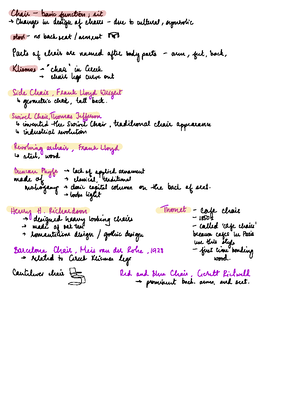 Chair - basic function, sit
→ Changes in design of chairs - due to cultural, symbolic
stool - no back seat / armrest
Parts of chair are named after body parts - arm, feet, back,
Klismos → "chair" in Greek
→ chair legs curve out
Side Chair, Frank Lloyd Wright
↳ geometric chair, tall back.
Swivel Chair, Thomas Jefferson
↳ invented the Swivel Chair, traditional chair appearance
↳ industrial revolution
Revolving armchair, Frank Lloyd
↳ steel, wood
Duncan Phyfe → lack of applied ornament
made of → classical, traditional
mahogany → chair capital column on the back of seat.
→ looks light
Henry H. Richardson
→ designed heavy looking chairs
→ made of oak
→ romanticism design / gothic design
Thonet - cafe chairs
- 1859
- called 'cafe chairs'
because cafes in Paris
use this style
- first time bending
wood.
Barcelona Chair, Mies van der Rohe, 1928
→ related to Greek Klismos legs
Cantilever chair
Red and Blue Chair, Gerrit Rietveld
→ prominent back, arms, and seat.